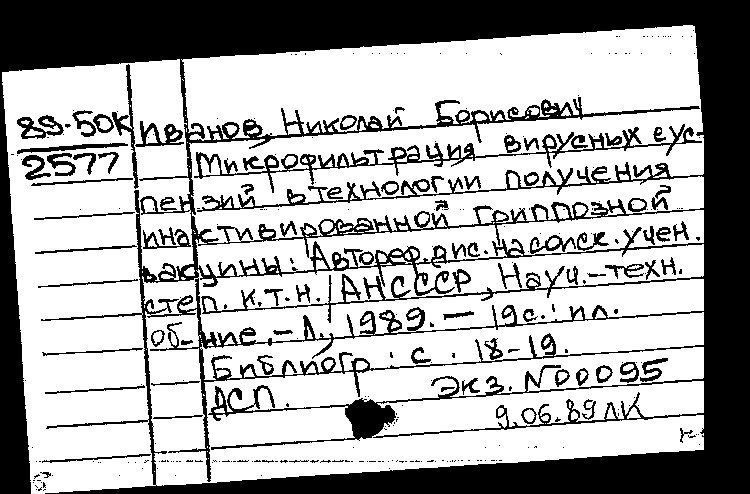 89-50К Иванов, Николай Борисович
2577 Микрофильтрация вирусных сус-
пензий в технологии получения
инактивированной гриппозной
вакцины: Автореф. дис. на соиск. учен.
степ. к.т.н. / АН СССР, Науч.-техн.
об-ние. - Л., 1989. — 19с.: ил.
Библиогр: с. 18-19.
ДСП. Экз. N00095
9.06.89 ЛК